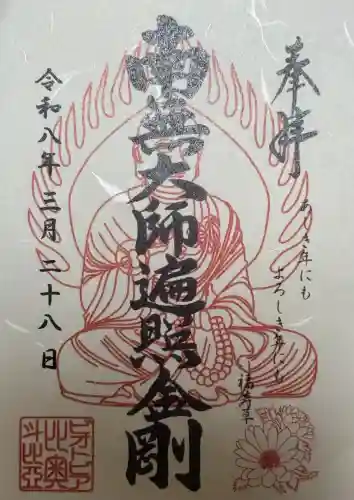 奉拝
あしき年にも
よろしき年にも
福寿草
南無大師遍照金剛
令和八年三月二十八日